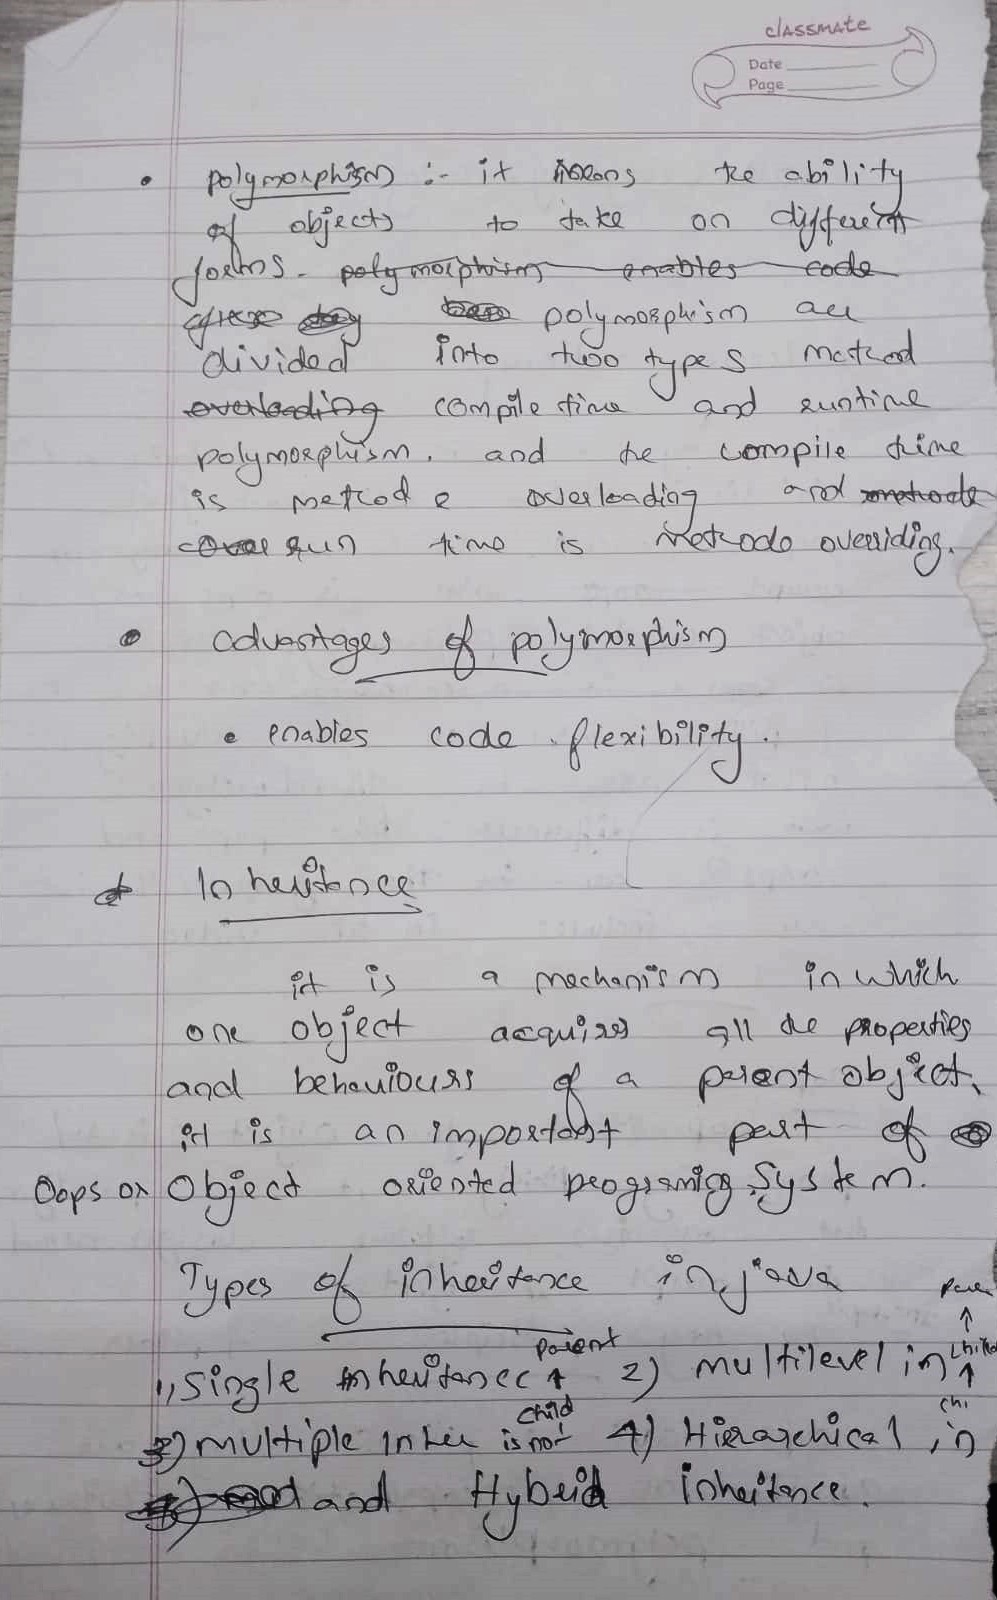 classmate
Date
Page
• polymorphism :- it means the ability
of objects to take on different
forms. polymorphism enables code
polymorphism are
divided into two types method
overloading compile time and runtime
polymorphism. and the compile time
is method e overloading and methode
run time is methode overriding.
• advantages of polymorphism
• enables code flexibility.
Inheritance
it is a mechanism in which
one object acquires all the properties
and behaviours of a parent object.
it is an important part of
Oops on Object oriented programing System.
Types of inheritance in java
1, Single inheritance parent ↑ child 2) multilevel in parent ↑ child ↑ chi
3) multiple inher is not 4) Hierarchical in
and Hybrid inheritance.